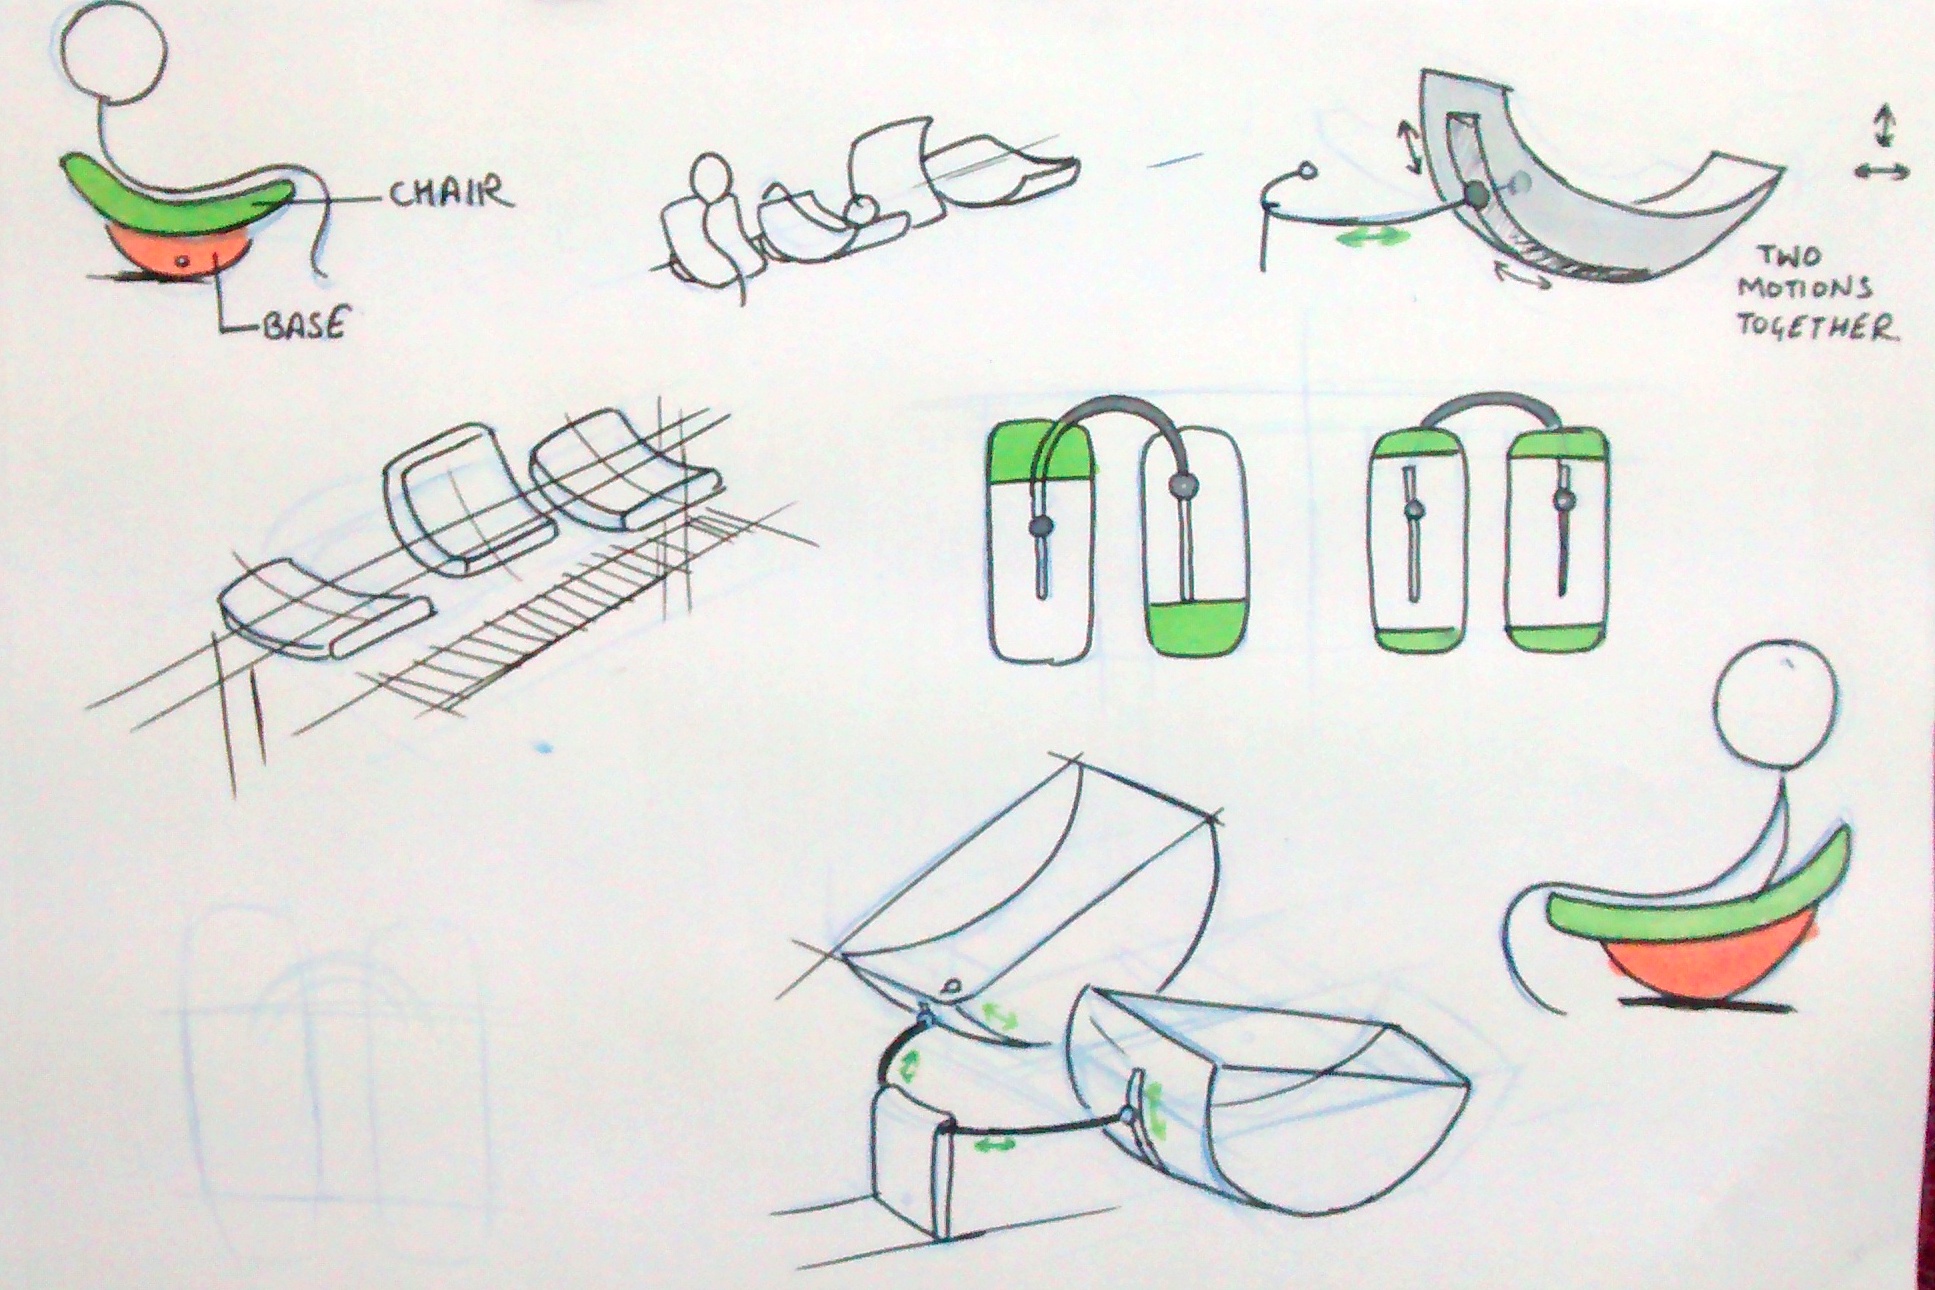 CHAIR
BASE
TWO
MOTIONS
TOGETHER